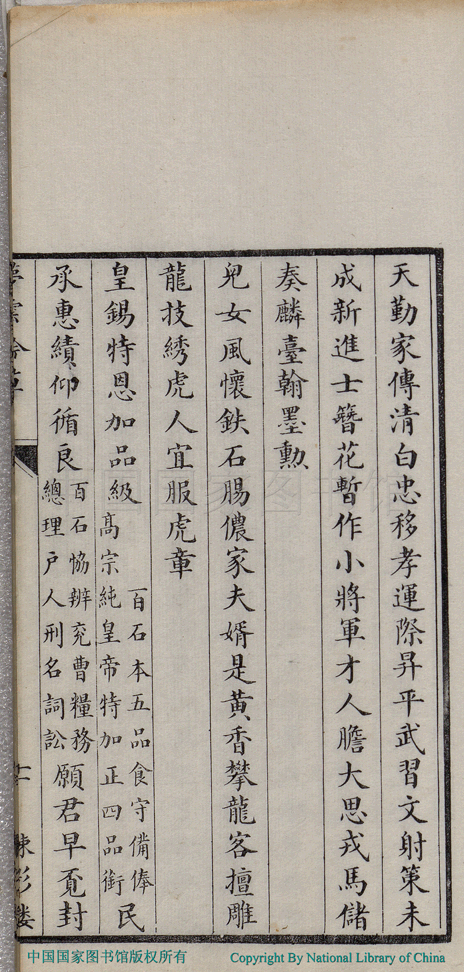 天勤家傳清白忠移孝運際昇平武習文射策未
成新進士簪花暫作小將軍才人膽大思戎馬儲
奏麟臺翰墨勲
兒女風懷鉄石腸儂家夫婿是黃香攀龍客擅雕
龍技綉虎人宜服虎章
百石本五品食守備俸
皇錫特恩加品級高宗純皇帝特加正四品銜民
承惠績仰循良百石協辦兖曹糧務
總理户人刑名詞訟願君早覔封
中国国家图书馆
中国国家图书馆版权所有 Copyright By National Library of China